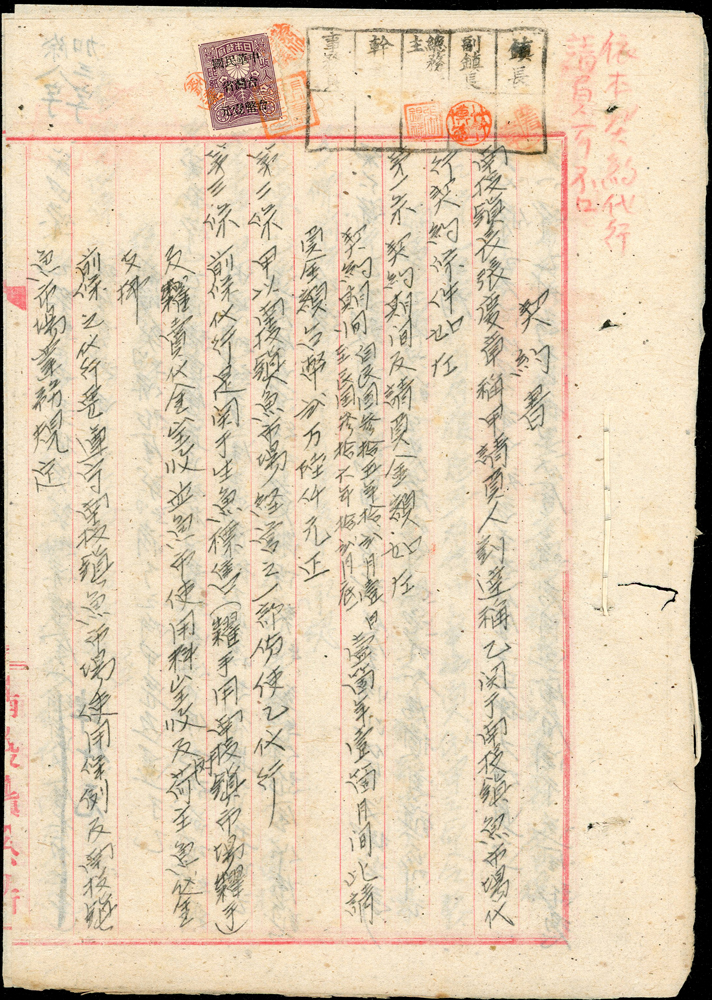 依本契約代行
請負
鎮長
副鎮長
總務
主
幹
事
日本政府
收入印紙
中華民國
契約書
南投鎮長張慶章稱甲請負人劉達稱乙関于南投鎮魚市場代
行契約條件如左
第一條 契約期间及請負金額如左
契約期间 自民國叁拾五年拾弍月壹日
至民國叁拾六年拾弍月底
壹箇年壹箇月间此請
負金額台幣弍万陸仟元正
第二條 甲以南投鎮魚市場経营之一部份使乙代行
第三條 前條代行是関于生魚標售(糶手用南投鎮市場糶手)
及糶賣代金収並魚市使用料収及荷主魚代金
支拂
前條之代行是遵守南投鎮魚市場使用條例及南投鎮
魚市場業務規定